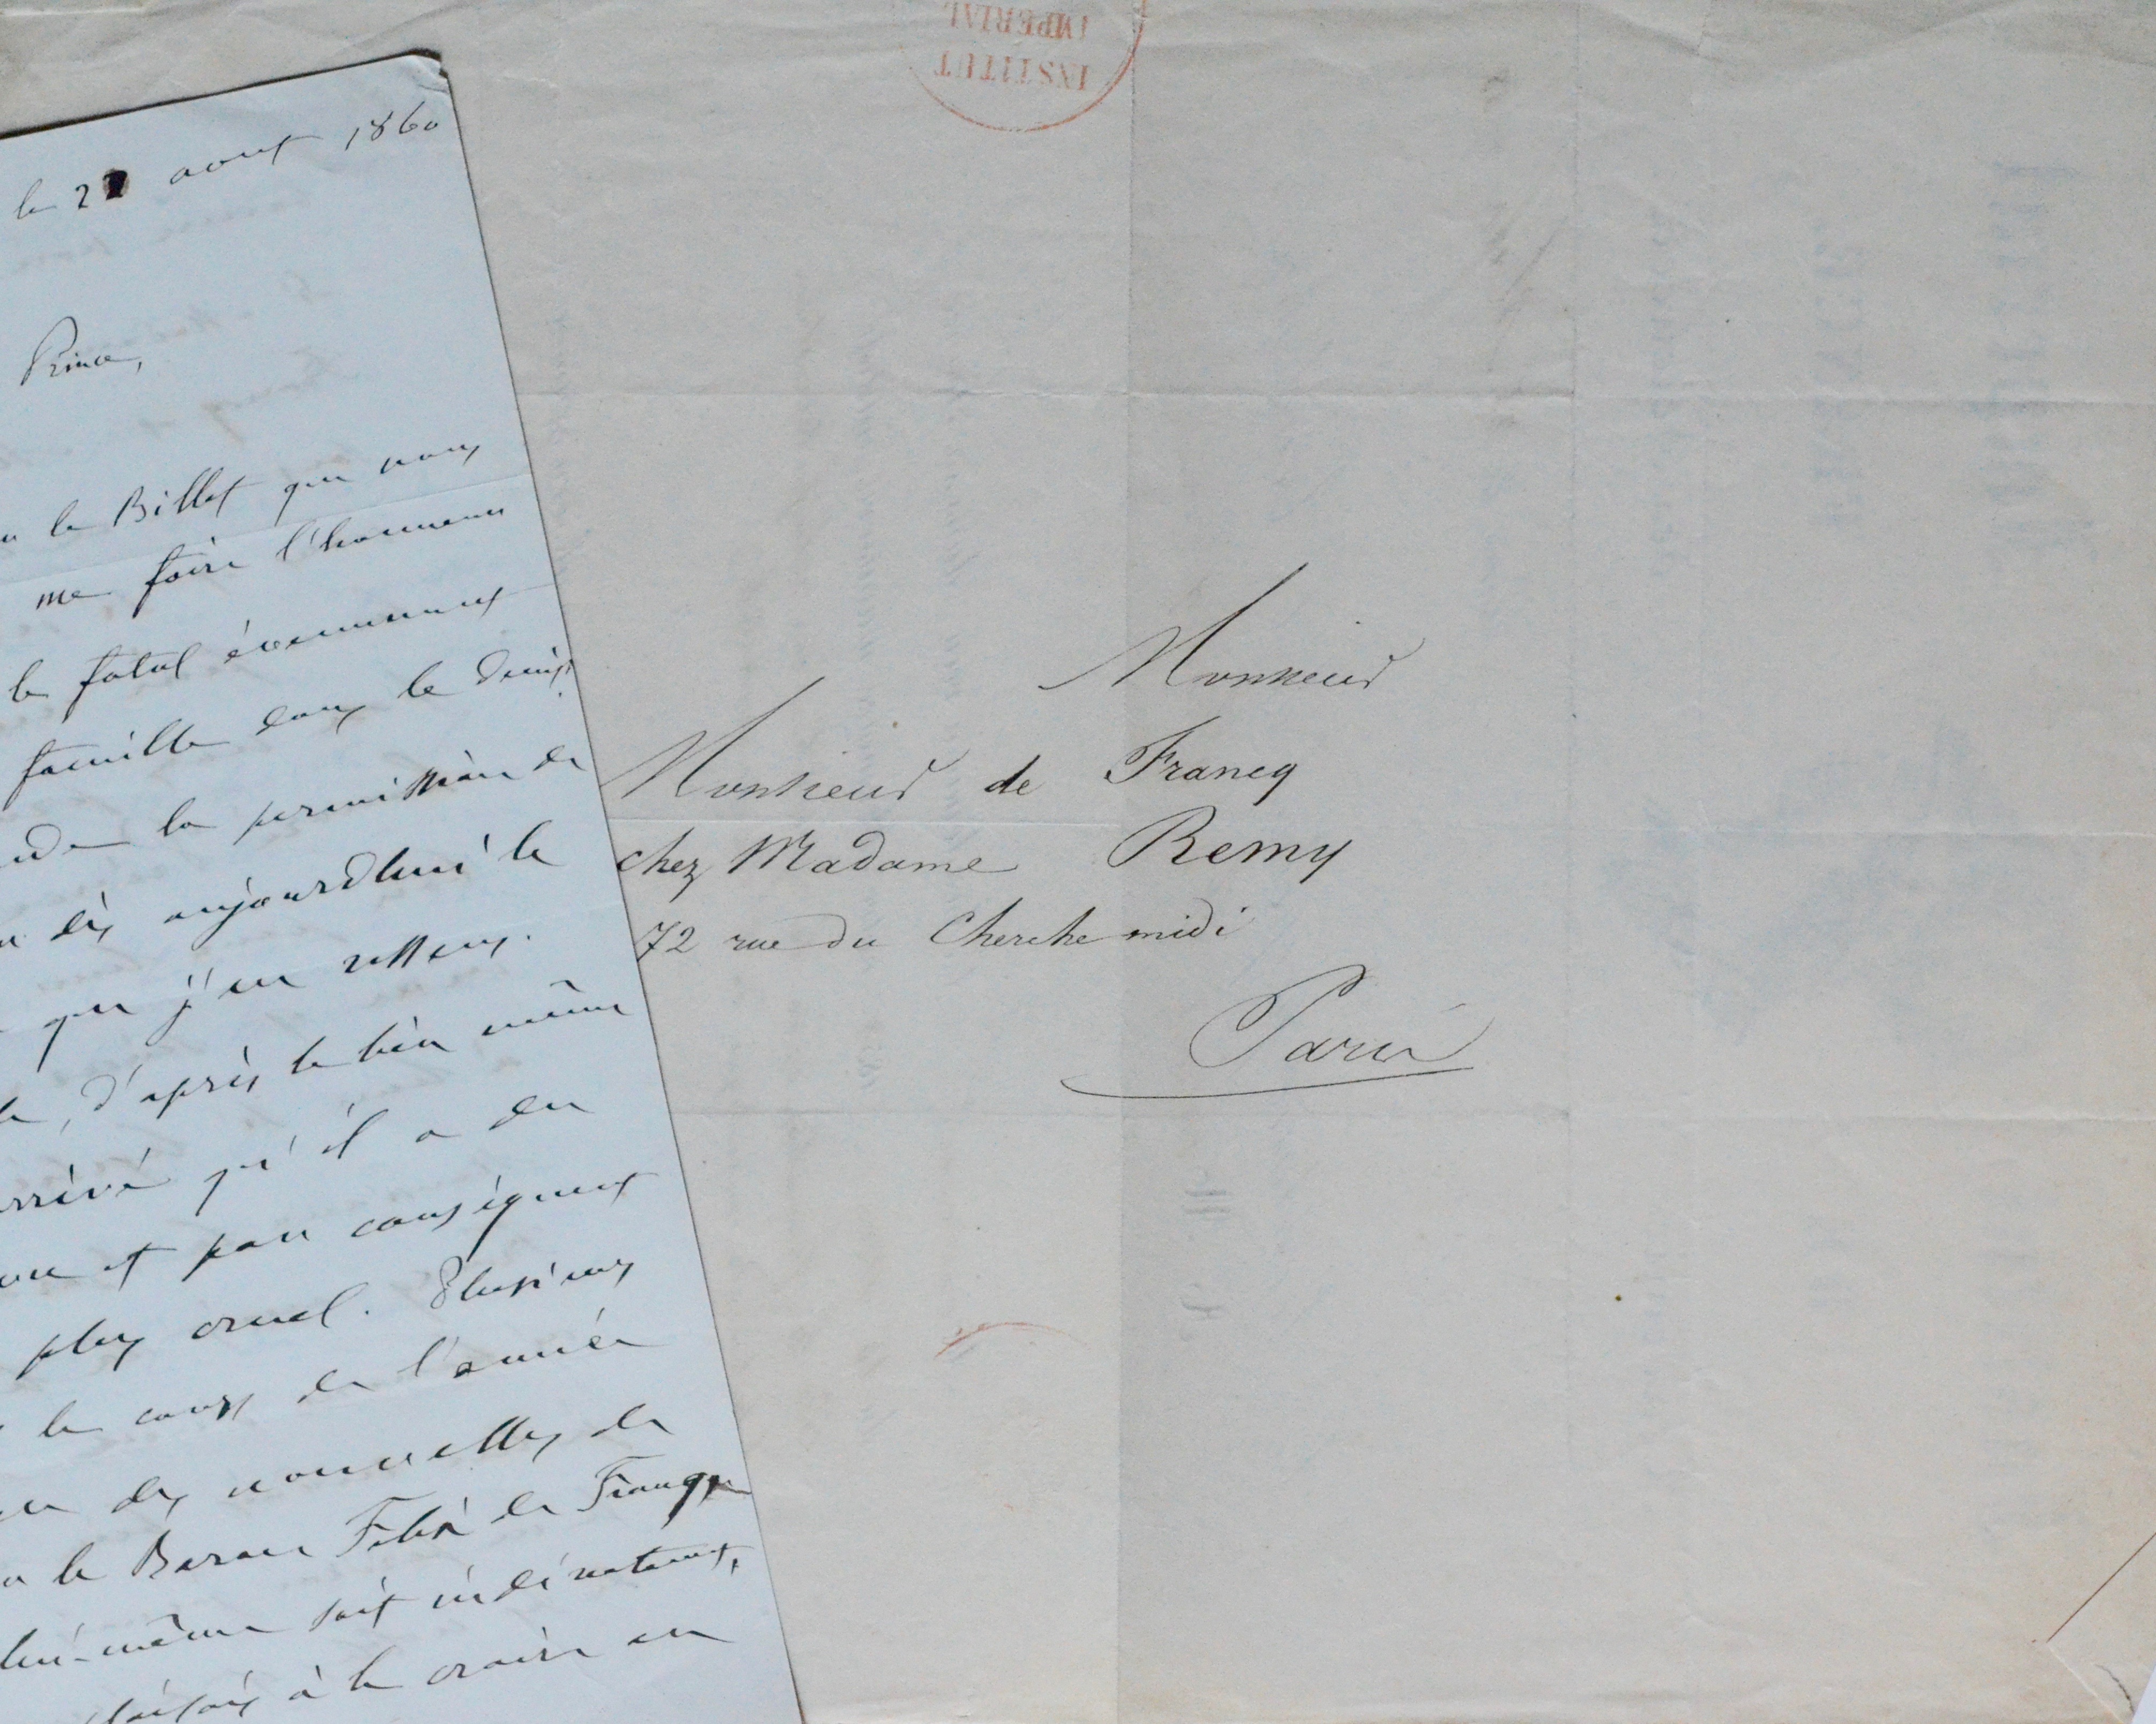 le 22 aout 1860
Prince,
le Billet que vous
me faire l'honneur
le fatal évennement
famille dans le deuil.
la permission de
dès aujourdhui le
que j'en ressens.
d'après le lien même
qu'il a du
et par conséquent
plus cruel. Plusieurs
le cours de l'année
des nouvelles de
le Baron Félix de Francq
lui-même soit indirectement,
à le croire en
INSTITUT
IMPERIAL
Monsieur
Monsieur de Francq
chez Madame Remy
72 rue du Cherche midi
Paris